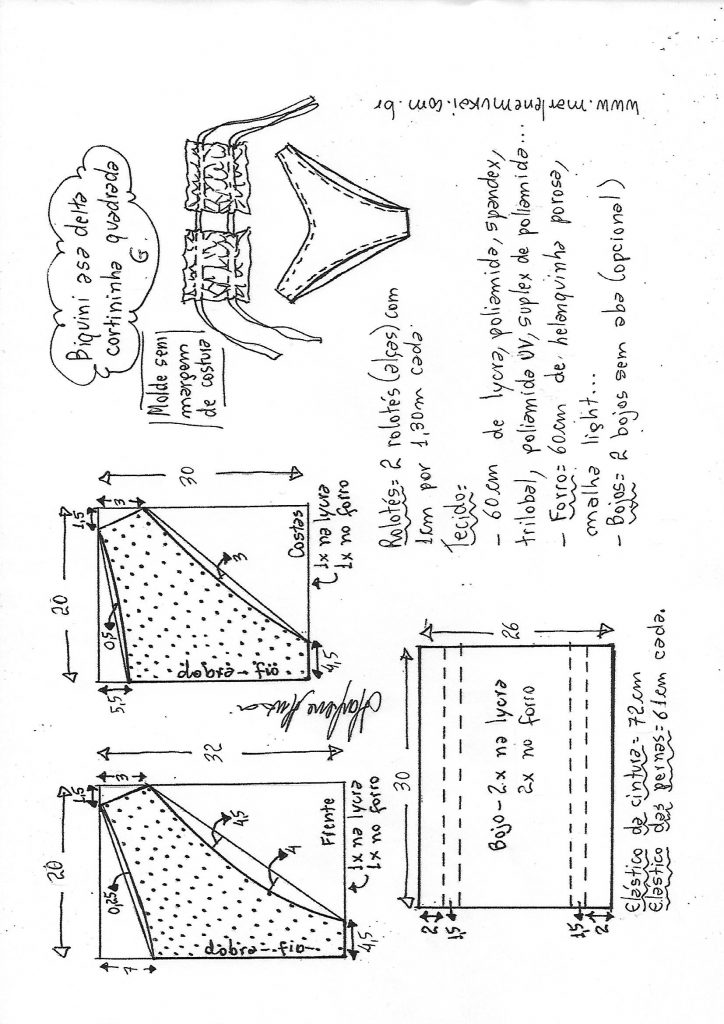 Biquini asa delta
cortininha quadrada
G.
Molde sem
margem
de costura
www.marlenemukai.com.br
20
1,5
3
0,25
7
4,5
4
32
dobra - fio
4,5
Frente
1x na lycra
1x no forro
20
1,5
3
0,5
5,5
3
30
dobra - fio
4,5
Costas
1x na lycra
1x no forro
Rolotés= 2 rolotés (alças) com
1cm por 1,30m cada
Tecido:
- 60cm de lycra, poliamida, spandex,
trilobal, poliamida UV, suplex de poliamida...
- Forro= 60cm de helanquinha porosa,
malha light...
- Bojos= 2 bojos sem aba (opcional)
30
26
Bojo - 2x na lycra
2x no forro
2
1,5
1,5
2
Elástico da cintura= 72cm
Elástico das pernas= 61cm cada.